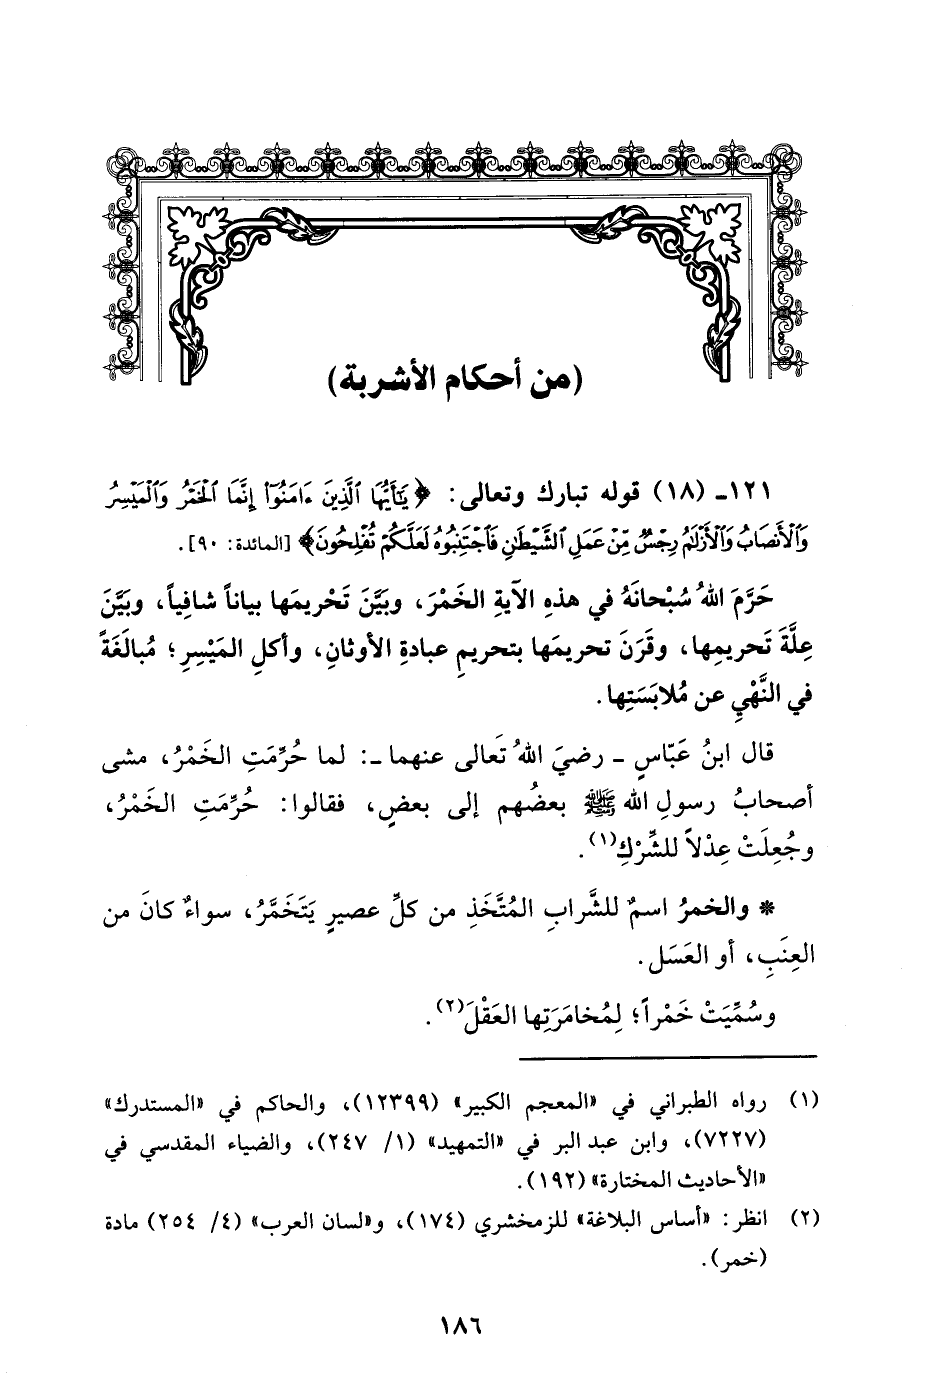 (من أحكام الأشربة)
١٢١ـ (١٨) قوله تبارك وتعالى: ﴿يَٰٓأَيُّهَا ٱلَّذِينَ ءَامَنُوٓا۟ إِنَّمَا ٱلْخَمْرُ وَٱلْمَيْسِرُ
وَٱلْأَنصَابُ وَٱلْأَزْلَٰمُ رِجْسٌ مِّنْ عَمَلِ ٱلشَّيْطَٰنِ فَٱجْتَنِبُوهُ لَعَلَّكُمْ تُفْلِحُونَ﴾ [المائدة: ٩٠].
حَرَّمَ اللهُ سُبْحانَهُ في هذهِ الآيةِ الخَمْرَ، وبيَّنَ تَحْريمَها بياناً شافِياً، وبيَّنَ
عِلَّةَ تَحريمِها، وقَرَنَ تحريمَها بتحريمِ عبادةِ الأوثانِ، وأكلِ المَيْسِرِ؛ مُبالَغَةً
في النَّهْيِ عن مُلابَسَتِها.
قال ابنُ عَبّاسٍ ـ رضيَ اللهُ تَعالى عنهما ـ: لما حُرِّمَتِ الخَمْرُ، مشى
أصحابُ رسولِ الله ﷺ بعضُهم إلى بعضٍ، فقالوا: حُرِّمَتِ الخَمْرُ،
وجُعِلَتْ عِدْلاً للشِّرْكِ(١).
* والخمرُ اسمٌ للشَّرابِ المُتَّخَذِ من كلِّ عصيرٍ يَتَخَمَّرُ، سواءٌ كانَ من
العِنَبِ، أو العَسَل.
وسُمِّيَتْ خَمْراً؛ لِمُخامَرَتِها العَقْلَ(٢).
(١) رواه الطبراني في «المعجم الكبير» (١٢٣٩٩)، والحاكم في «المستدرك»
(٧٢٢٧)، وابن عبد البر في «التمهيد» (١/ ٢٤٧)، والضياء المقدسي في
«الأحاديث المختارة» (١٩٢).
(٢) انظر: «أساس البلاغة» للزمخشري (١٧٤)، و«لسان العرب» (٤/ ٢٥٤) مادة
(خمر).
١٨٦